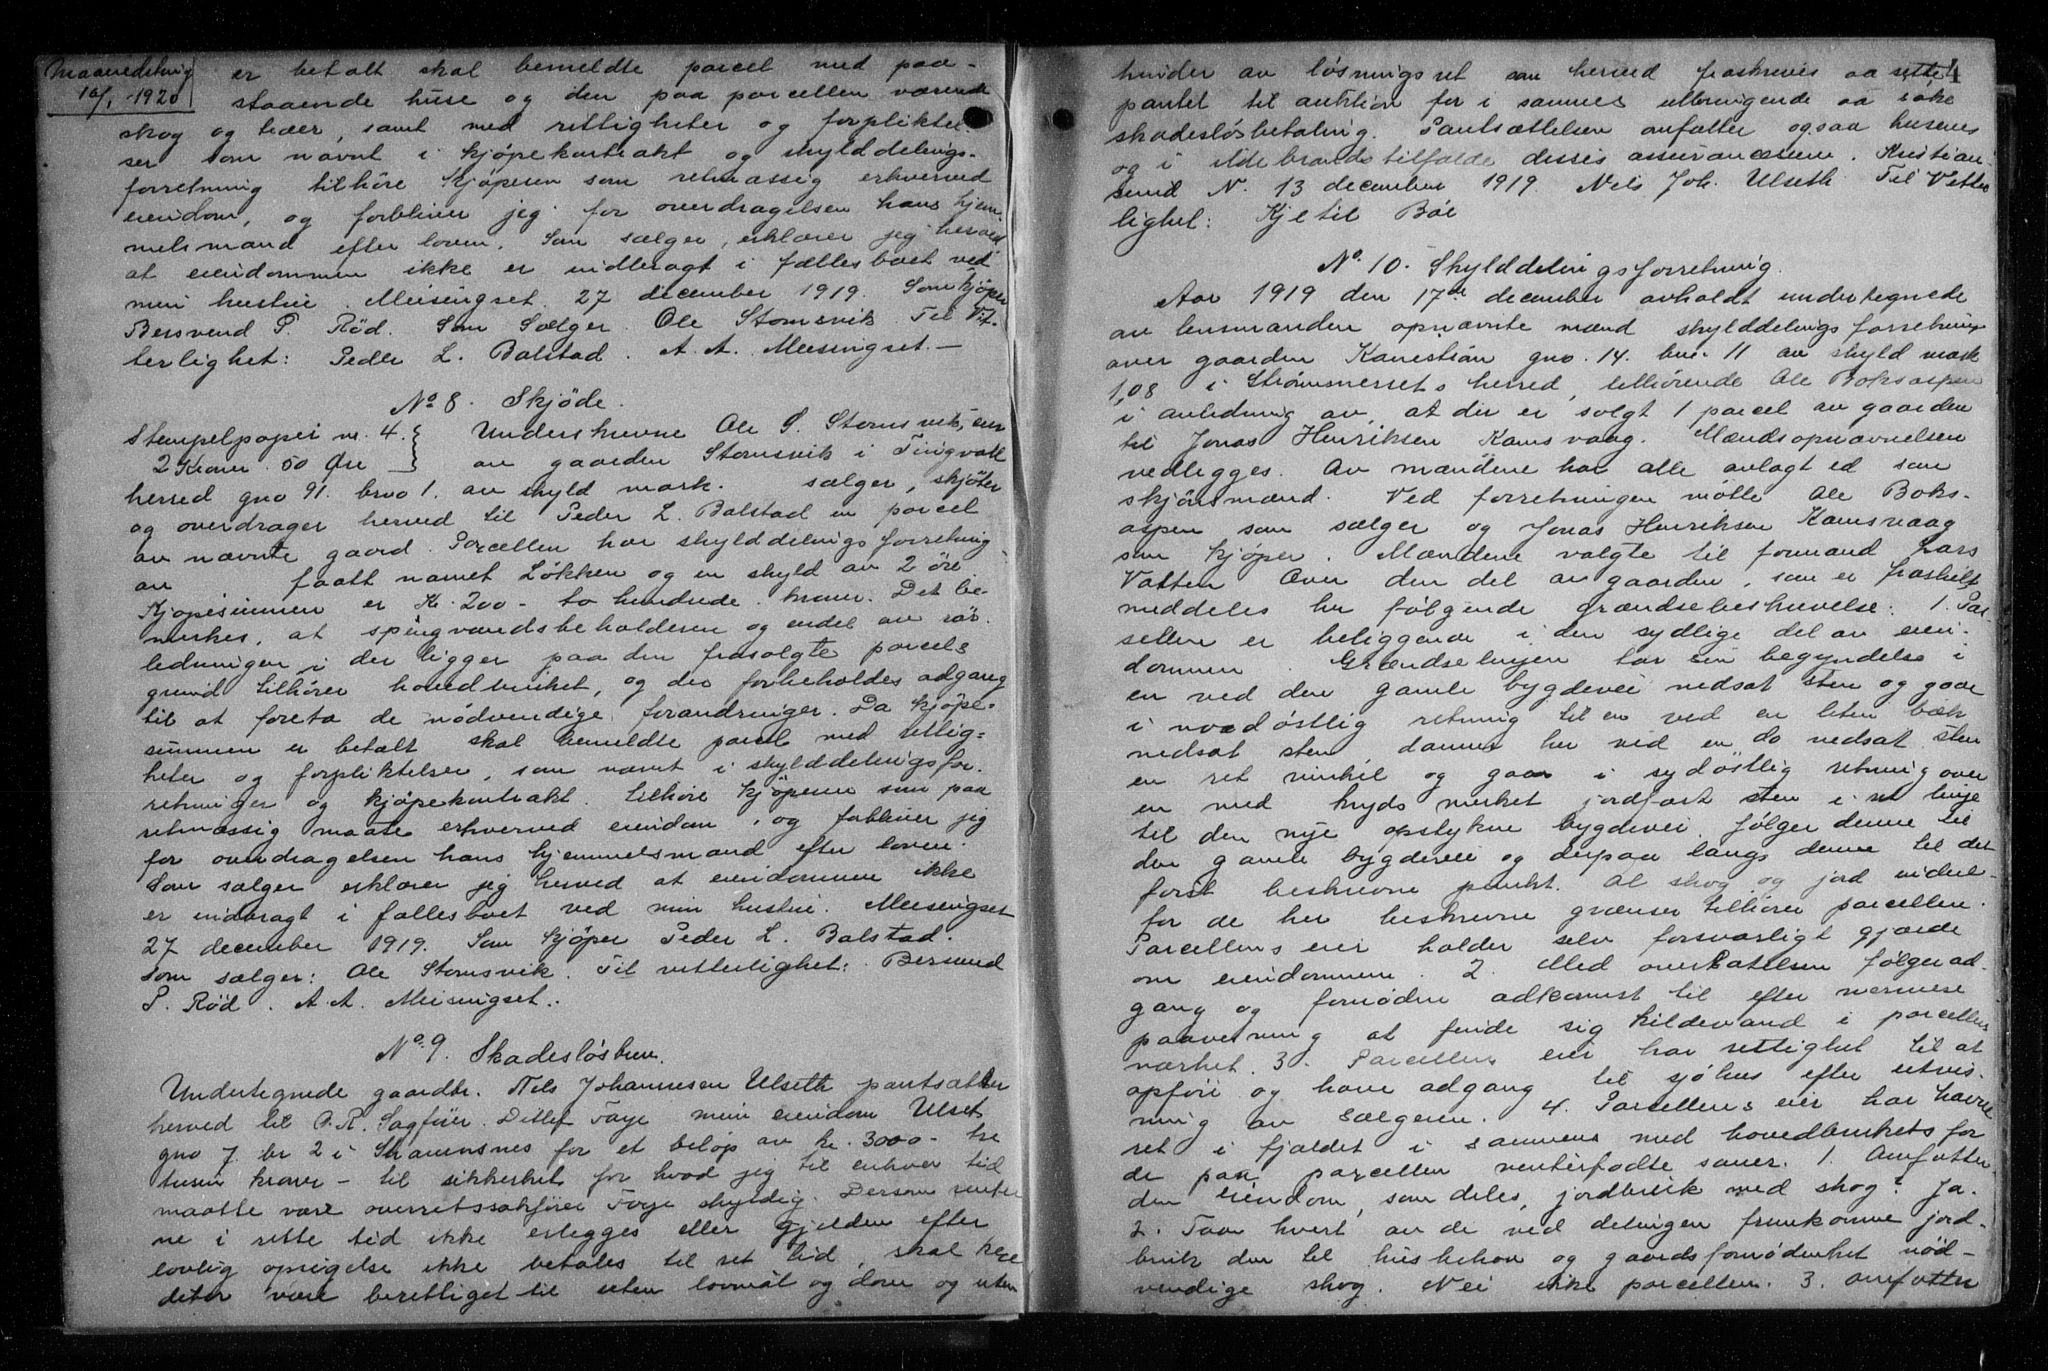 Maanedsting
10/1 - 1920
er betalt skal bemeldte parcel med paa-
staaende huse og den paa parcellen værende
skog og trær, samt med rettigheter og forpliktel-
ser som nævnt i kjøpekontrakt og skylddelings-
forretning tilhøre kjøperen som retmæssig erhverved
eiendom, og forbliver jeg for overdragelsen hans hjem-
melsmand efter loven. Som sælger, erklærer jeg herved
at eiendommen ikke er indbragt i fællesboet ved
min hustru. Meisingset 27 december 1919. Som kjøper
Bersvend P. Rød. Som Sælger. Ole Stomsvik Til Vit-
terlighet: Peder L. Balstad. A. A. Meisingset. —
No 8. Skjøde.
Stempelpapir nr. 4.
2 Kroner 50 Øre
Underskrevne Ole S. Stomsvik, eier
av gaarden Stomsvik i Tingvoll
herred gno 91. brno 1. av skyld mark. sælger, skjøter
og overdrager herved til Peder L. Balstad en parcel
av nævnte gaard. Parcellen har skylddelingsforretning
av faatt navnet Løkken og en skyld av 2 øre
Kjøpesummen er Kr. 200 - to hundrede kroner. Det be-
merkes, at springvandsbeholderen og endel av rør-
ledningen i der ligger paa den frasolgte parcels
grund tilhører hovedbruket, og der forbeholdes adgang
til at foreta de nødvendige forandringer. Da kjøpe-
summen er betalt skal bemeldte parcel med rettig-
heter og forpliktelser, som nævnt i skylddelingsfor-
retninger og kjøpekontrakt tilhøre kjøperen som paa
retmæssig maate erhverved eiendom, og forbliver jeg
for overdragelsen hans hjemmelsmand efter loven.
Som sælger erklærer jeg herved at eiendommen ikke
er indbragt i fællesboet ved min hustru. Meisingset
27 december 1919. Som kjøper Peder L. Balstad.
Som sælger: Ole Stomsvik. Til vitterlighet: Bersvend
P. Rød. A. A. Meisingset.
No. 9. Skadesløsbrev.
Undertegnede gaardbr. Nils Johannesen Ulseth pantsætter
herved til O. R. Sagfører Ditlef Faye min eiendom Ulset
gno 7 br 2 i Straumsnes for et beløp av kr. 3000 - tre
tusen kroner - til sikkerhet for hvad jeg til enhver tid
maatte være overretssakfører Faye skyldig. Dersom renter-
ne i rette tid ikke erlegges eller gjelden efter
lovlig opsigelse ikke betales til ret tid, skal kre-
ditor være berettiget til uten lovmål og dom og uten
hinder av løsningsret som herved fraskrives at sette 4
pantet til auktion for i sammes utbringende at søke
skadesløsbetaling. Pantsættelsen omfatter ogsaa husene
og i ildebrandstilfælde disses assurancesum. Kristian-
sund N. 13 december 1919. Nils Joh. Ulseth. Til Vitter-
lighet: Kjetil Bøe
No. 10. Skylddelingsforretning.
Aar 1919 den 17de december avholdt undertegnede
av lensmanden opnævnte mænd skylddelingsforretning
over gaarden Kanestrøm gno. 14. bno. 11 av skyld mark
1,08 i Strømsnessets herred, tilhørende Ole Boksaspen
i anledning av, at der er solgt 1 parcel av gaarden
til Jonas Henriksen Kamsvaag. Mændsopnævnelsen
vedlegges. Av mændene har alle avlagt ed som
skjønsmænd. Ved forretningen møtte Ole Boks-
aspen som sælger og Jonas Henriksen Kamsvaag
som kjøper. Mændene valgte til formand Lars
Vatten Over den del av gaarden, som er fraskilt
meddeles her følgende grændsebeskrivelse: 1. Par-
sellen er beliggende i den sydlige del av eien-
dommen. Grændselinjen tar sin begyndelse i
en ved den gamle bygdevei nedsat sten og gaar
i nordøstlig retning til en ved en liten bæk
nedsat sten danner her ved en do nedsat sten
en ret vinkel og gaar i sydøstlig retning over
en med kryds merket jordfast sten i ret linje
til den nye opstykne bygdevei. følger denne til
den gamle bygdevei og derpaa langs denne til det
først beskrevne punkt. Al skog og jord inden-
for de her beskrevne grænser tilhører parcellen.
Parcellens eier holder selv forsvarligt gjærde
om eiendommen. 2. Med overlatelsen følger ad-
gang og fornøden adkomst til efter nærmere
paavisning at finde sig kildevand i parcellens
nærhet. 3. Parcellens eier har rettighet til at
opføre og have adgang til sjøhus efter utvis-
ning av sælgeren. 4. Parcellens eier har havne
ret i fjeldet i sammens med hovedbrukets for
de paa parcellen vinterfødte sauer. 1. Omfatter
den eiendom, som deles, jordbruk med skog? Ja.
2. Faar hvert av de ved delingen fremkomne jord-
bruk den til husbehov og gaardsfornødenhet nød-
vendige skog. Nei ikke parcellen. 3. Omfatter